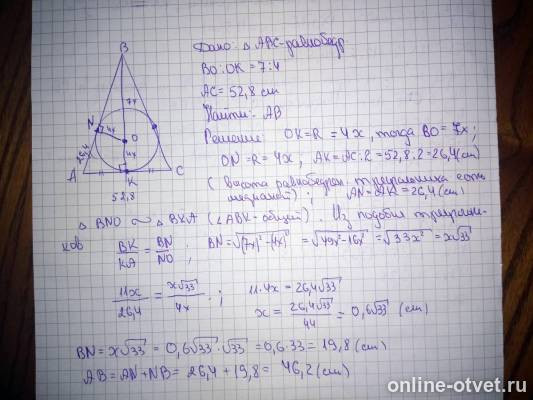 Дано: Δ ABC-равнобедр
BO:OK = 7:4
AC = 52,8 см
Найти: AB
Решение: OK=R = 4x, тогда BO = 7x;
ON=R=4x, AK=AC:2=52,8:2=26,4(см)
(высота равнобедрен. треугольника есть
медианой); AN=AK=26,4(см)
B
7x
N
4x
O
4x
26,4
A
K
C
52,8
Δ BNO ~ Δ BKA (∠ABK-общий). Из подобия треугольни-
ков BK/KA = BN/NO, BN=√(7x)²-(4x)² = √49x²-16x² = √33x² = x√33
11x/26,4 = x√33/4x; 11·4x = 26,4√33
x = 26,4√33/44 = 0,6√33 (см)
BN = x√33 = 0,6√33·√33 = 0,6·33 = 19,8(см)
AB = AN+NB = 26,4+19,8 = 46,2(см)
online-otvet.ru